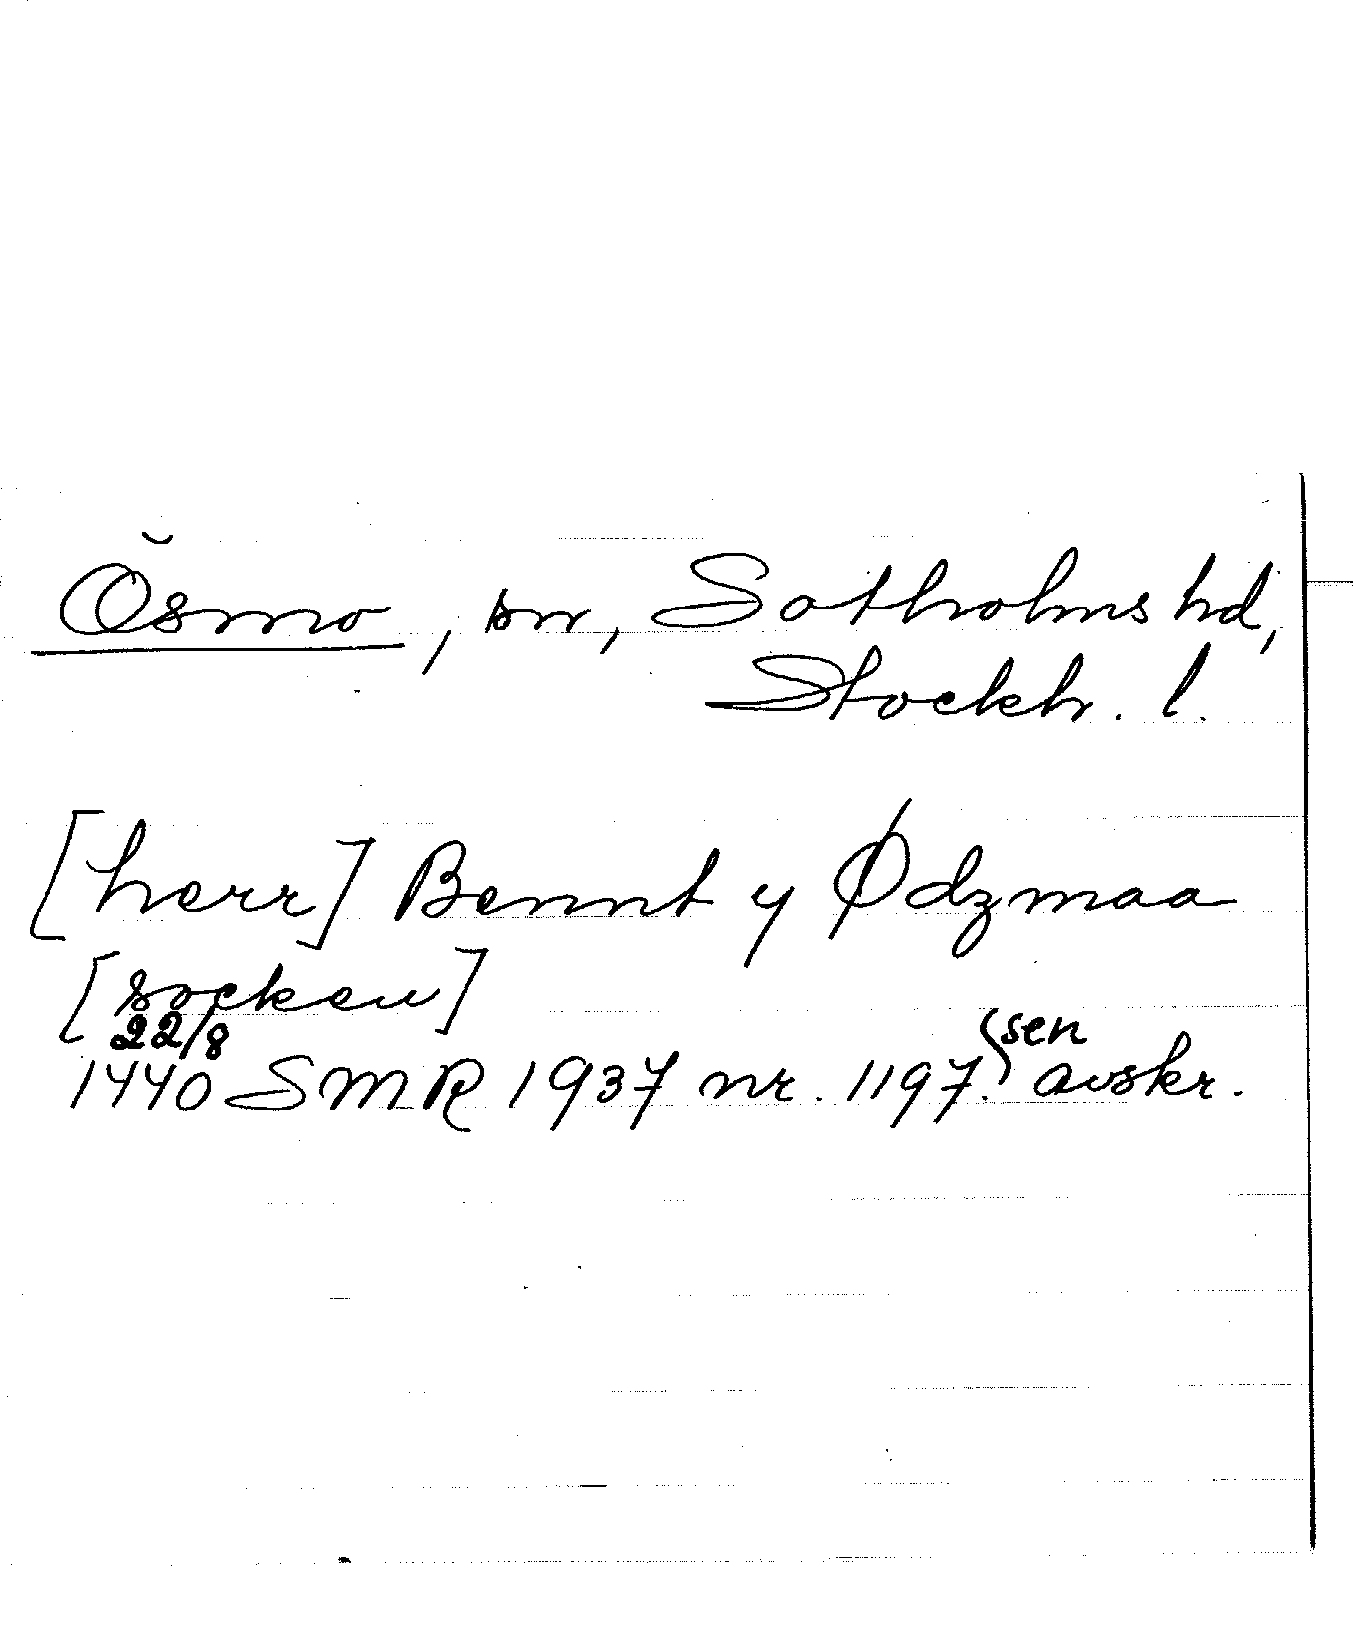 Ösmo, sn, Sotholms hd,
Stockh. l.
[herr] Bennt y Ødzmaa
[socken]
22/8
1440 SMR 1937 nr. 1197. sen avskr.